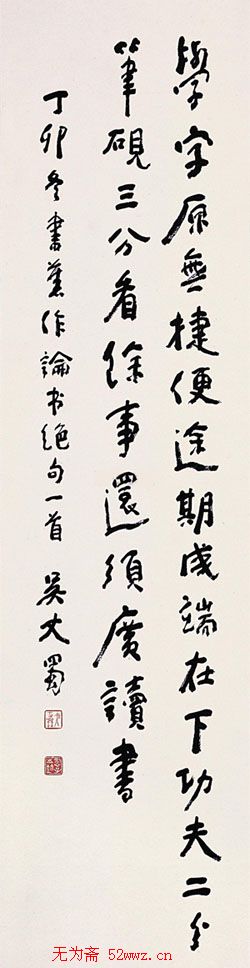 學字原無捷便途期成端在下功夫二分
筆硯三分看餘事還須廣讀書
丁卯冬書舊作論书绝句一首 吴丈蜀
无为斋 52wwz.cn